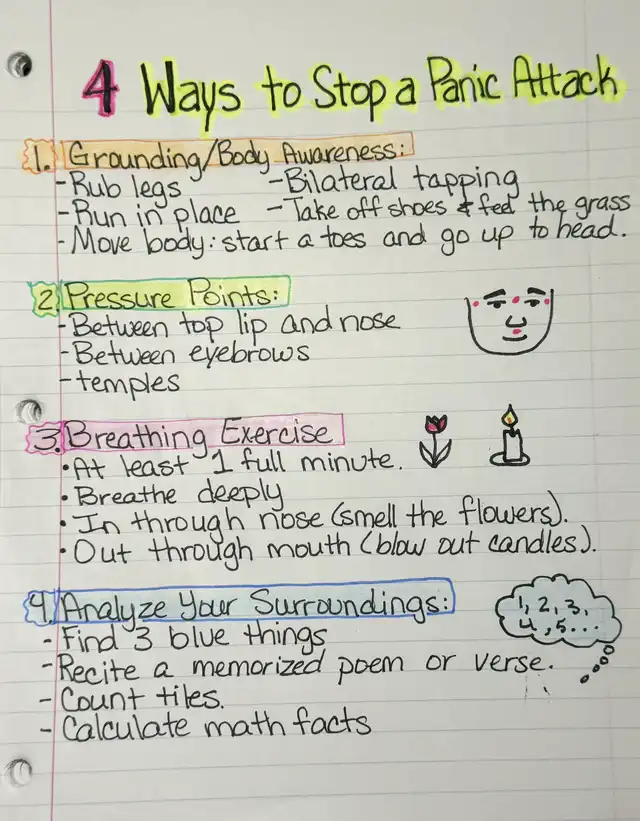 4 Ways to Stop a Panic Attack
1. Grounding/Body Awareness:
- Rub legs - Bilateral tapping
- Run in place - Take off shoes & feel the grass
- Move body: start a toes and go up to head.
2. Pressure Points:
- Between top lip and nose
- Between eyebrows
- temples
3. Breathing Exercise
• At least 1 full minute.
• Breathe deeply
• In through nose (smell the flowers).
• Out through mouth (blow out candles).
4. Analyze Your Surroundings:
1, 2, 3,
4, 5...
- Find 3 blue things
- Recite a memorized poem or verse.
- Count tiles.
- Calculate math facts